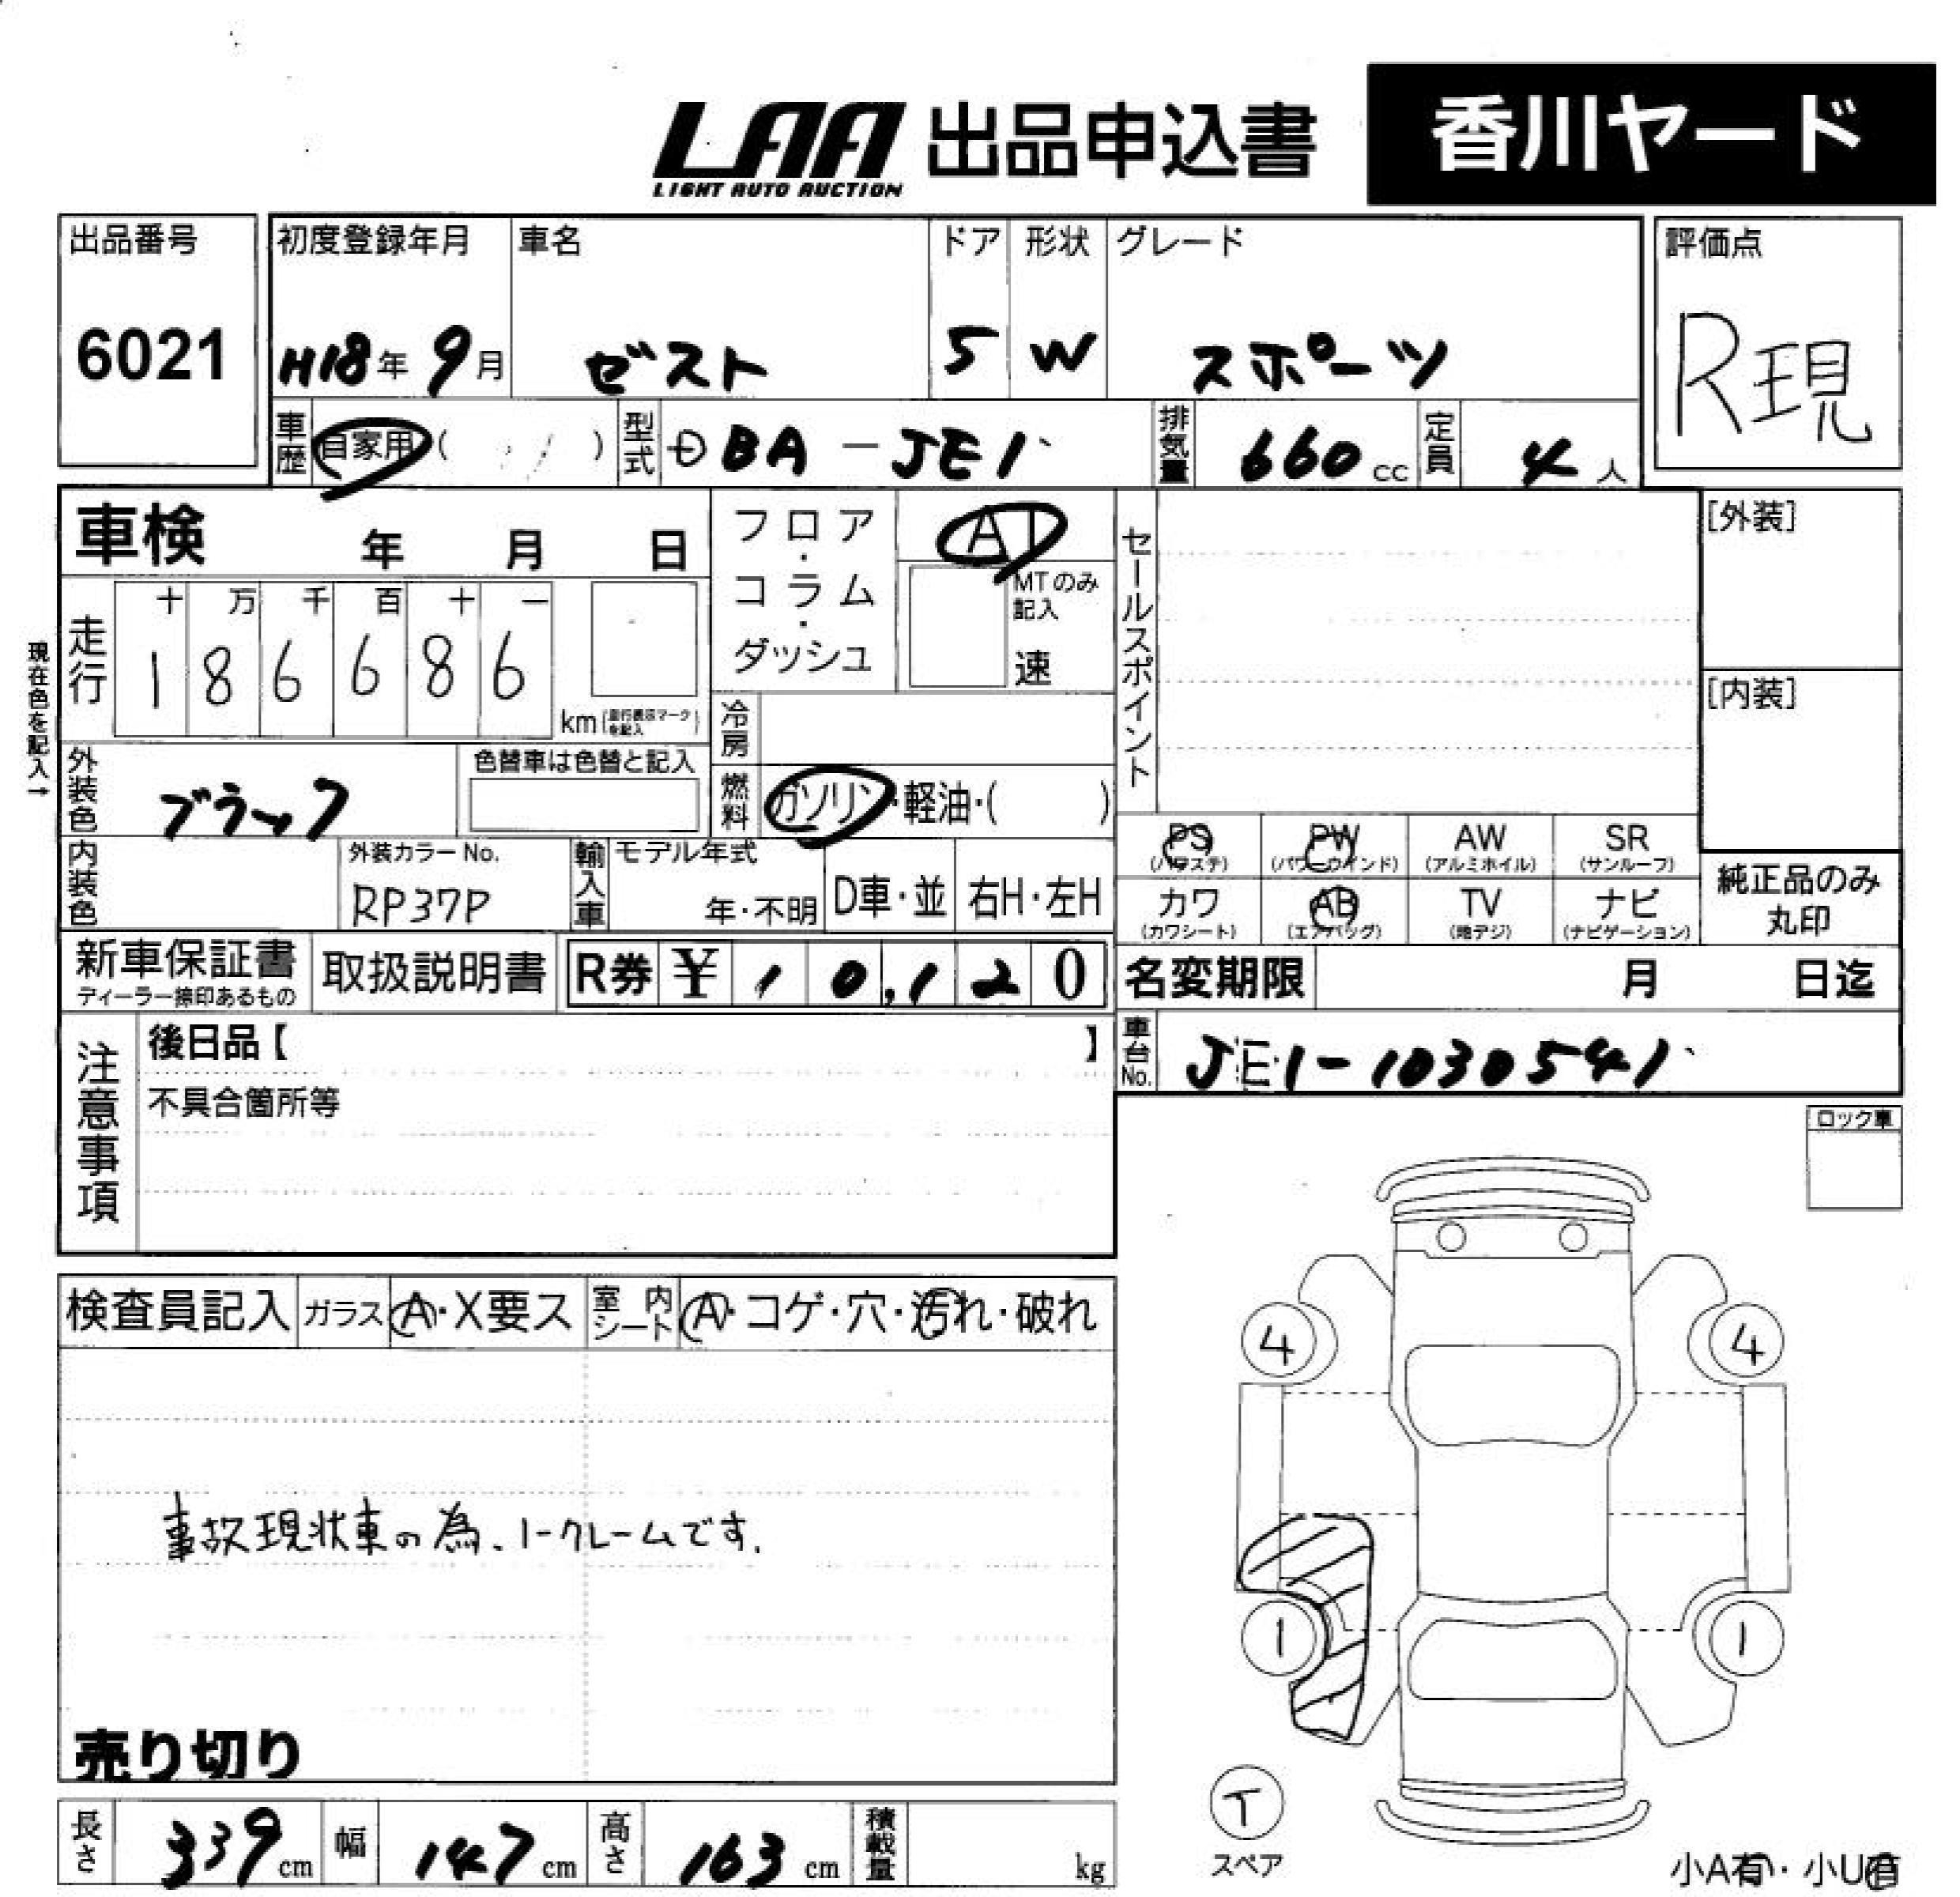 LAA 出品申込書 香川ヤード
LIGHT AUTO AUCTION
出品番号 初度登録年月 車名 ドア 形状 グレード 評価点
6021 H18年 9月 ゼスト 5 W スポーツ R現
車歴 自家用 ( ) 型式 DBA-JE1 排気量 660cc 定員 4人
車検 年 月 日 フロア・コラム・ダッシュ AT セールスポイント [外装]
走行 十 万 千 百 十 一 MTのみ記入
1 8 6 6 8 6 速 [内装]
現在色を記入→
km 冷房
外装色 ブラック 色替車は色替と記入 燃料 ガソリン・軽油・( )
PS PW AW SR
(パワステ) (パワーウインド) (アルミホイル) (サンルーフ)
内装色 外装カラーNo. RP37P 輸入車 モデル年式 年・不明 D車・並 右H・左H
カワ AB TV ナビ 純正品のみ
(カワシート) (エアバッグ) (地デジ) (ナビゲーション) 丸印
新車保証書 取扱説明書 R券 ¥ 10,120 名変期限 月 日迄
ディーラー捺印あるもの
注意事項 後日品【 】 車台No. JE1-1030541
不具合箇所等
ロック車
検査員記入 ガラス A・X要ス 室内シート A・コゲ・穴・汚れ・破れ
4 4
事故現状車の為、ノークレームです.
1 1
売り切り
T
スペア
長さ 339cm 幅 147cm 高さ 163cm 積載量 kg
小A有・小U有